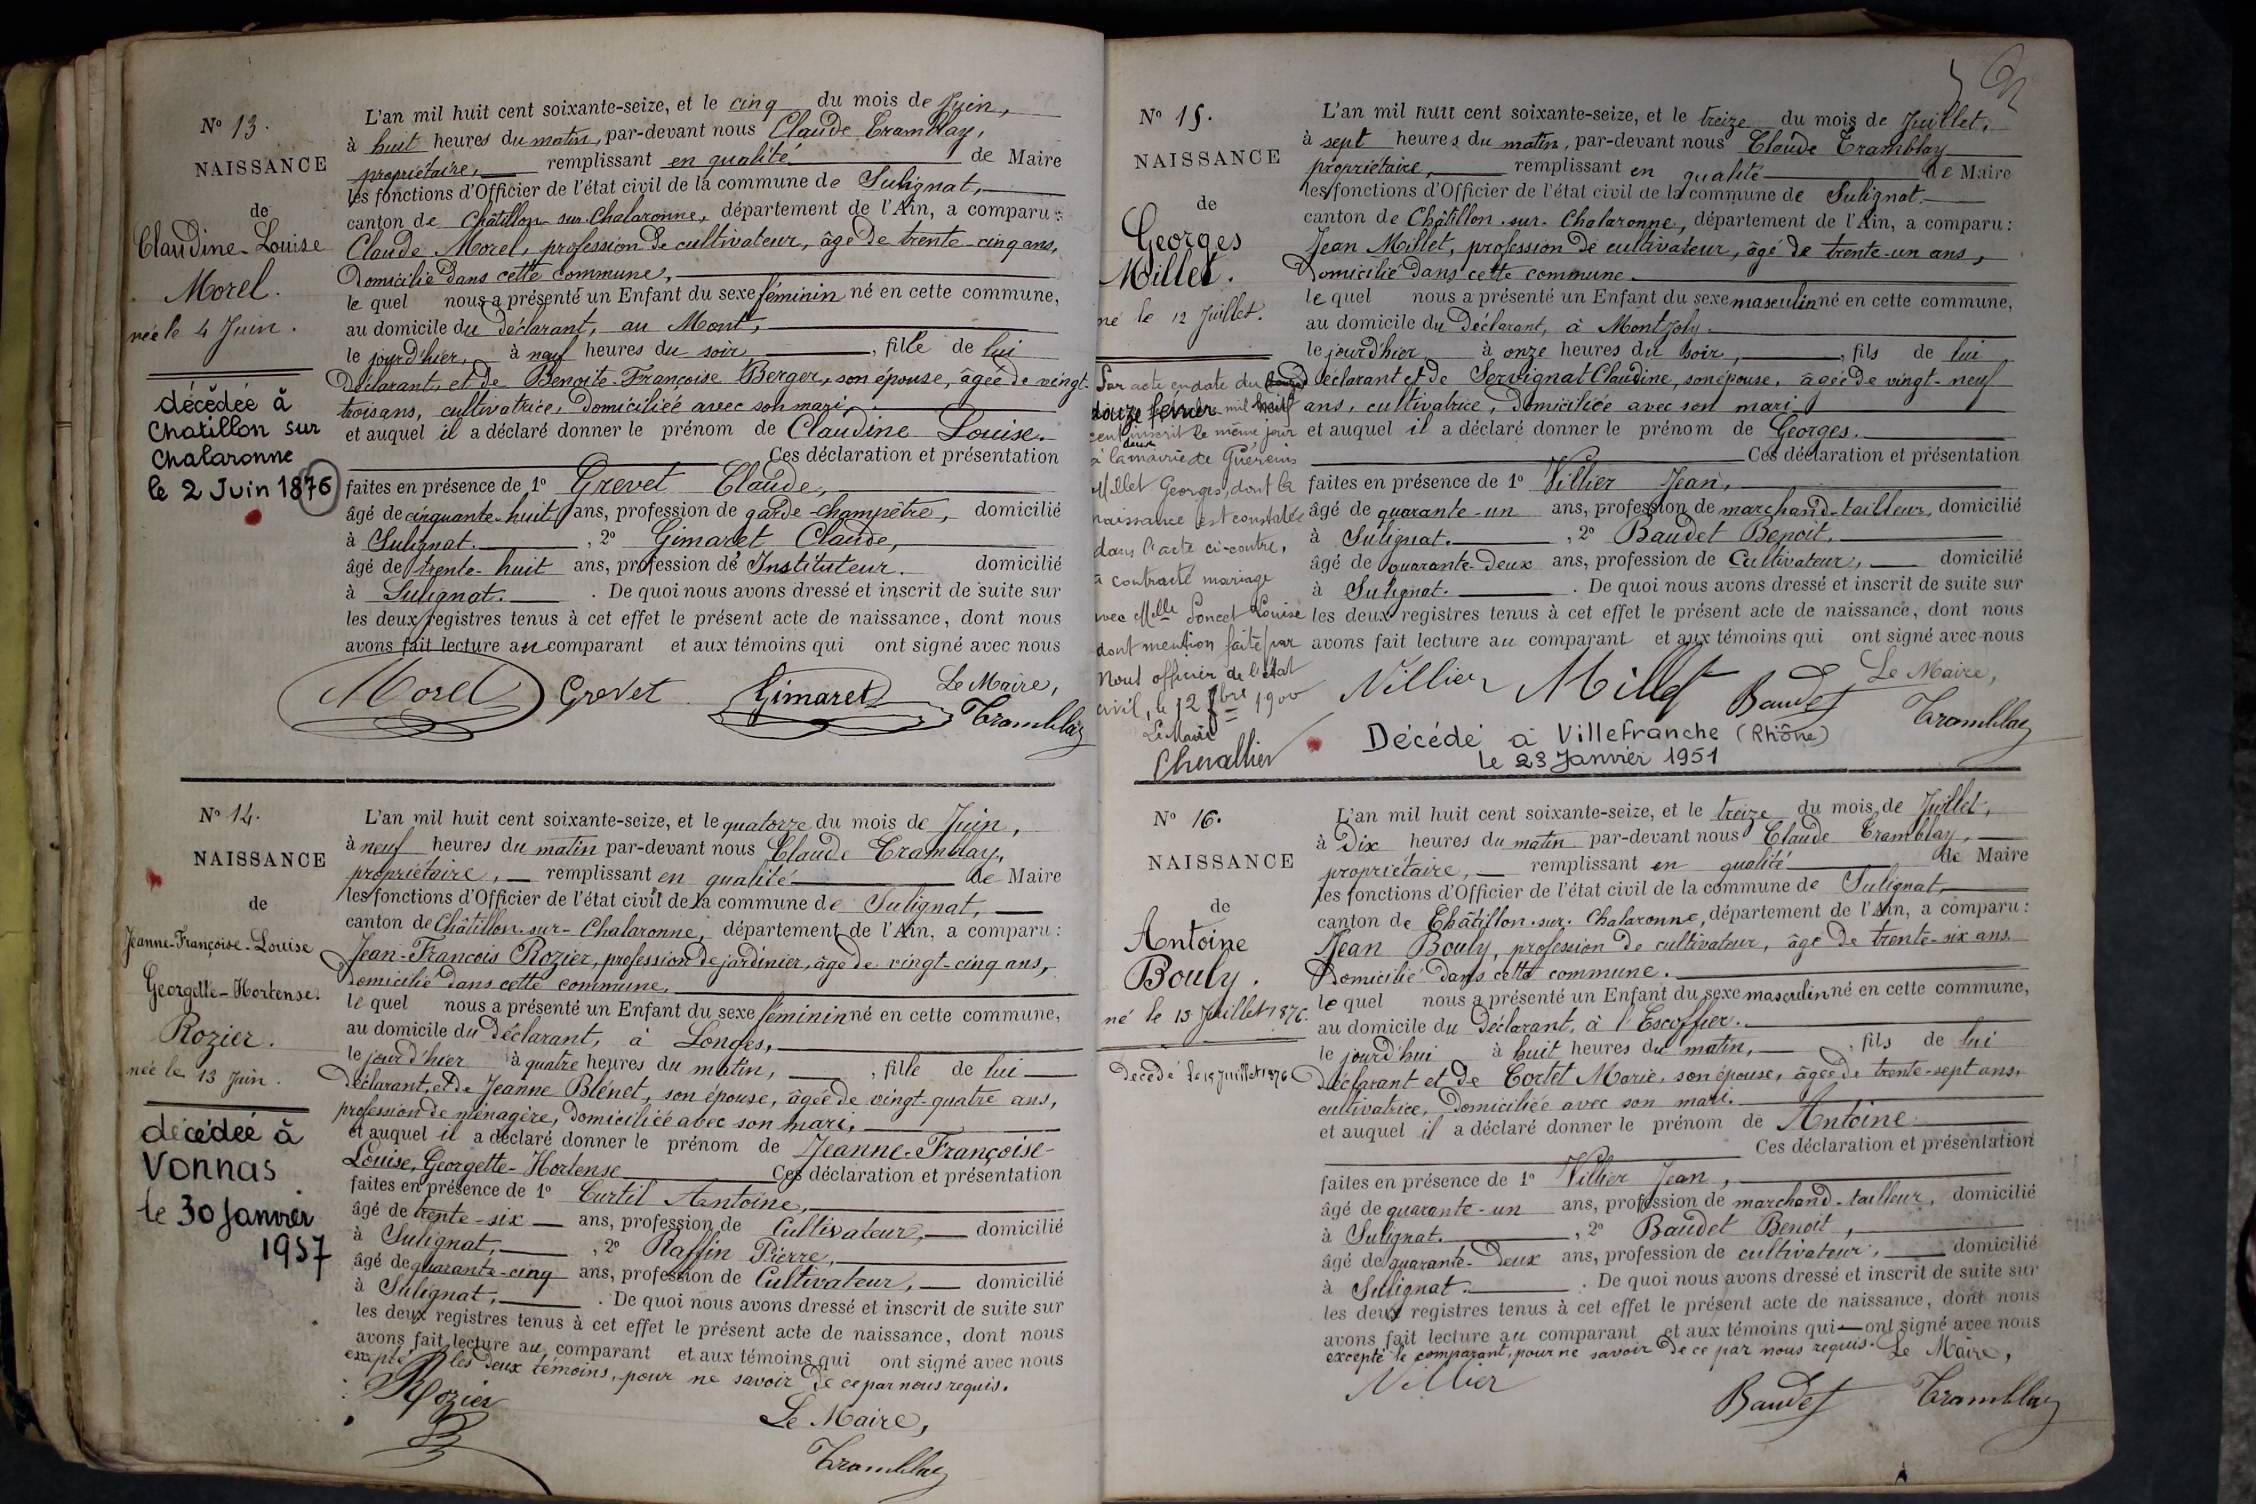 N° 13.
NAISSANCE
de
Claudine-Louise
Morel.
née le 4 Juin.
décédée à
Chatillon sur
Chalaronne
le 2 Juin 1876
L'an mil huit cent soixante-seize, et le cinq du mois de Juin,
à huit heures du matin, par-devant nous Claude Tramblay,
propriétaire, remplissant en qualité de Maire
les fonctions d'Officier de l'état civil de la commune de Sulignat,
canton de Châtillon-sur-Chalaronne, département de l'Ain, a comparu :
Claude Morel, profession de cultivateur, âgé de trente-cinq ans,
domicilié dans cette commune,
le quel nous a présenté un Enfant du sexe féminin né en cette commune,
au domicile du déclarant, au Mont,
le jourd'hier, à neuf heures du soir, , fille de lui
déclarant, et de Benoite-Françoise Berger, son épouse, âgée de vingt-
trois ans, cultivatrice, domiciliée avec son mari,
et auquel il a déclaré donner le prénom de Claudine Louise.
Ces déclaration et présentation
faites en présence de 1° Grevet Claude,
âgé de cinquante-huit ans, profession de garde-champêtre, domicilié
à Sulignat. , 2° Gimaret Claude,
âgé de trente-huit ans, profession de Instituteur. domicilié
à Sulignat. . De quoi nous avons dressé et inscrit de suite sur
les deux registres tenus à cet effet le présent acte de naissance, dont nous
avons fait lecture au comparant et aux témoins qui ont signé avec nous
Le Maire,
Morel Grevet Gimaret Tramblay
N° 14.
NAISSANCE
de
Jeanne-Françoise-Louise
Georgette-Hortense.
Rozier.
née le 13 Juin.
décédée à
Vonnas
le 30 Janvier
1957
L'an mil huit cent soixante-seize, et le quatorze du mois de Juin,
à neuf heures du matin par-devant nous Claude Tramblay,
propriétaire, remplissant en qualité de Maire
les fonctions d'Officier de l'état civil de la commune de Sulignat,
canton de Châtillon-sur-Chalaronne, département de l'Ain, a comparu :
Jean-François Rozier, profession de jardinier, âgé de vingt-cinq ans,
domicilié dans cette commune,
le quel nous a présenté un Enfant du sexe féminin né en cette commune,
au domicile du déclarant, à Longes,
le jourd'hier à quatre heures du matin, , fille de lui
déclarant, et de Jeanne Blénet, son épouse, âgée de vingt-quatre ans,
profession de ménagère, domiciliée avec son mari,
et auquel il a déclaré donner le prénom de Jeanne-Françoise-
Louise, Georgette-Hortense Ces déclaration et présentation
faites en présence de 1° Curtil Antoine,
âgé de trente-six ans, profession de Cultivateur, domicilié
à Sulignat, , 2° Raffin Pierre,
âgé de quarante-cinq ans, profession de Cultivateur, domicilié
à Sulignat, . De quoi nous avons dressé et inscrit de suite sur
les deux registres tenus à cet effet le présent acte de naissance, dont nous
avons fait lecture au comparant et aux témoins qui ont signé avec nous
excepté les deux témoins, pour ne savoir de ce par nous requis.
Rozier
Le Maire,
Tramblay
N° 15.
NAISSANCE
de
Georges
Millet.
né le 12 Juillet.
Par acte en date du
douze février mil neuf
cent inscrit le même jour
deux
à la mairie de Guéreins
Millet Georges, dont la
naissance est constatée
dans l'acte ci-contre,
a contracté mariage
avec Melle Poncet Louise
dont mention faite par
Nous officier de l'état
civil, le 12 1900
Le Maire
Chevallier
L'an mil huit cent soixante-seize, et le treize du mois de Juillet,
à sept heures du matin, par-devant nous Claude Tramblay
propriétaire, remplissant en qualité de Maire
les fonctions d'Officier de l'état civil de la commune de Sulignat.
canton de Châtillon-sur-Chalaronne, département de l'Ain, a comparu :
Jean Millet, profession de cultivateur, âgé de trente-un ans,
domicilié dans cette commune.
le quel nous a présenté un Enfant du sexe masculin né en cette commune,
au domicile du déclarant, à Montjoly.
le jourd'hier à onze heures du soir, , fils de lui
déclarant et de Servignat Claudine, son épouse, âgée de vingt-neuf
ans, cultivatrice, domiciliée avec son mari
et auquel il a déclaré donner le prénom de Georges.
Ces déclaration et présentation
faites en présence de 1° Villier Jean,
âgé de quarante-un ans, profession de marchand-tailleur, domicilié
à Sulignat. , 2° Baudet Benoit.
âgé de quarante-deux ans, profession de Cultivateur, domicilié
à Sulignat. . De quoi nous avons dressé et inscrit de suite sur
les deux registres tenus à cet effet le présent acte de naissance, dont nous
avons fait lecture au comparant et aux témoins qui ont signé avec nous
Le Maire,
Villier Millet Baudet Tramblay
Décédé à Villefranche (Rhône)
le 23 Janvier 1951
N° 16.
NAISSANCE
de
Antoine
Bouly.
né le 13 Juillet 1876.
Décédé le 15 Juillet 1876
L'an mil huit cent soixante-seize, et le treize du mois de Juillet,
à Dix heures du matin par-devant nous Claude Tramblay,
propriétaire, remplissant en qualité de Maire
les fonctions d'Officier de l'état civil de la commune de Sulignat,
canton de Châtillon-sur-Chalaronne, département de l'Ain, a comparu :
Jean Bouly, profession de cultivateur, âgé de trente-six ans
domicilié dans cette commune.
le quel nous a présenté un Enfant du sexe masculin né en cette commune,
au domicile du déclarant, à l'Escoffier.
le jourd'hui à huit heures du matin, , fils de lui
déclarant et de Cortet Marie, son épouse, âgée de trente-sept ans,
cultivatrice, domiciliée avec son mari.
et auquel il a déclaré donner le prénom de Antoine
Ces déclaration et présentation
faites en présence de 1° Villier Jean,
âgé de quarante-un ans, profession de marchand-tailleur, domicilié
à Sulignat. , 2° Baudet Benoit,
âgé de quarante-deux ans, profession de cultivateur, domicilié
à Sulignat. . De quoi nous avons dressé et inscrit de suite sur
les deux registres tenus à cet effet le présent acte de naissance, dont nous
avons fait lecture au comparant et aux témoins qui ont signé avec nous
excepté le comparant, pour ne savoir de ce par nous requis. Le Maire,
Villier Baudet Tramblay